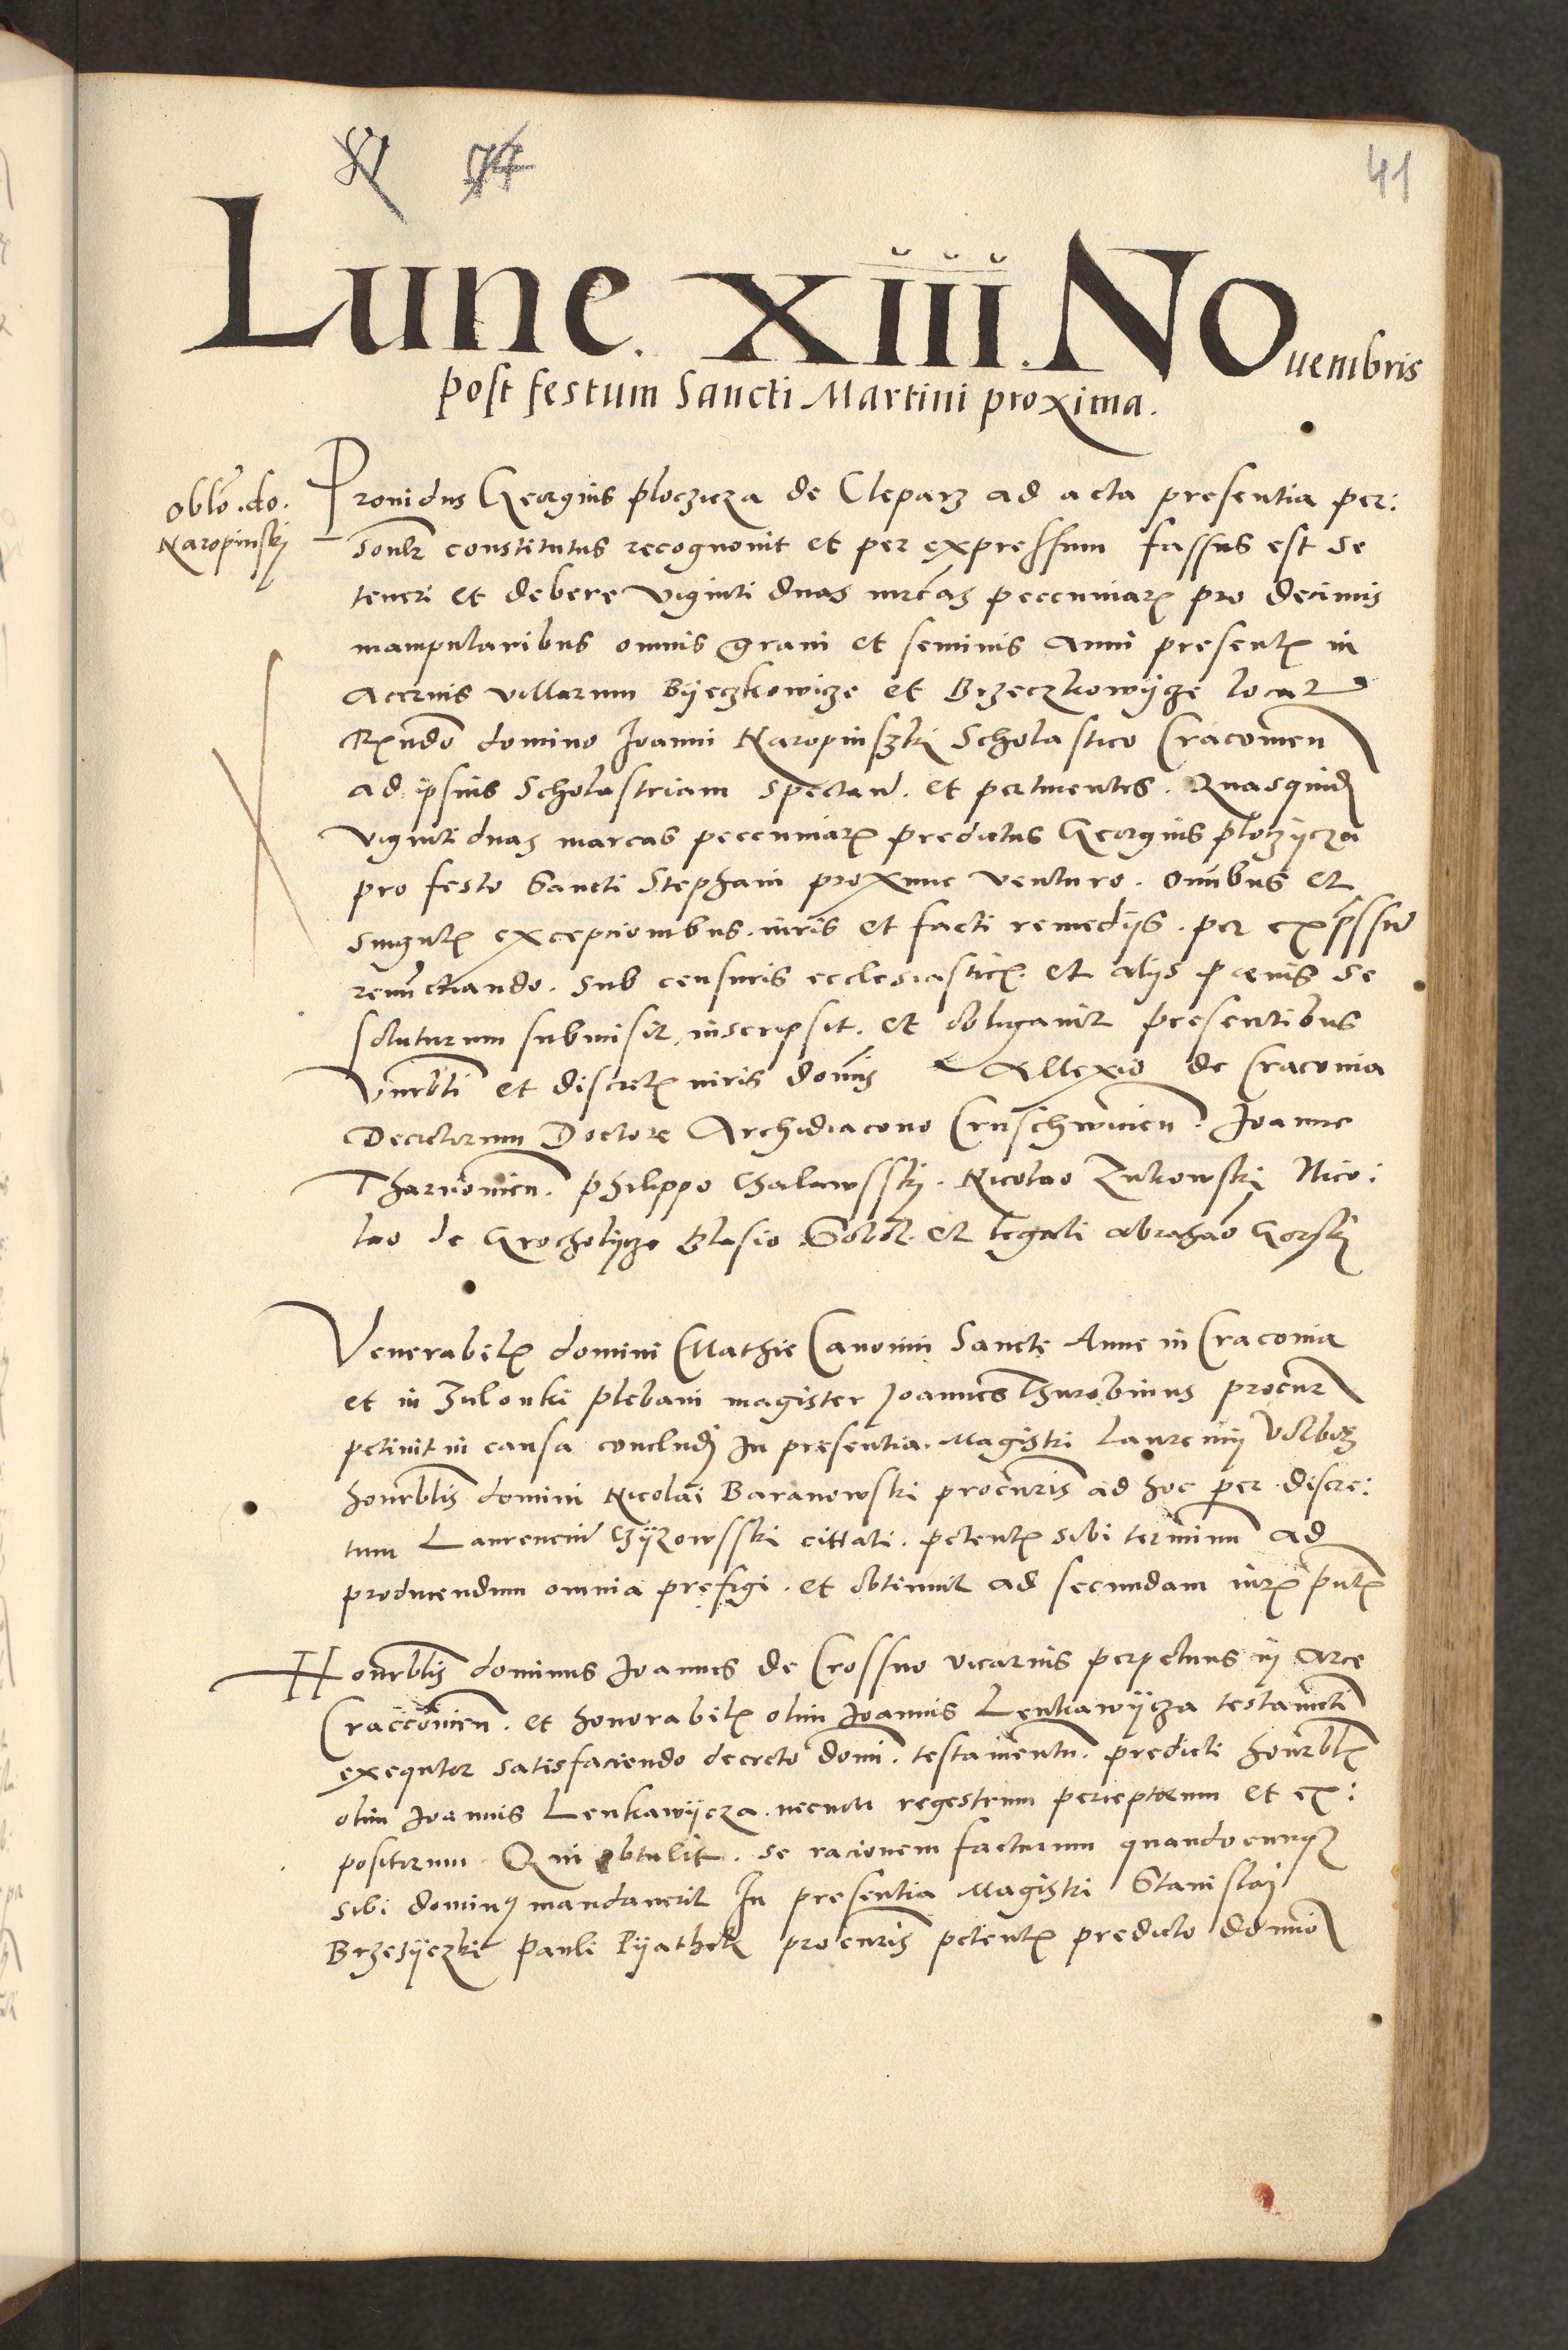 41
Lune. XIII. Nouembris
post festum Sancti Martini proxima.
Oblo. do.
Karopinskj
Prouidus Georgius ploczicza de Cleparz ad acta presentia per:
sonlr constitutus recognouit et per expressum fassus est se
teneri et debere viginti duas mrcas peccuniar pro decimis
manipularibus omnis grani et seminis anni present in
aceruis villarum Byeczkowicze et Brzeczkowycze locat
Rndo domino Joanni Karopinszkj Scholastico Cracouien
ad ipsius scholastriam spectan. et pertinentes. Quasquid
viginti duas marcas peccuniar predictus Georgius ploczycza
pro festo Sancti Stephani proxime venturo. omibus et
singul excepcionibus. iuris et facti remedijs. per expssu
renuctiando. sub censuris ecclesiastic. et alijs penis se
soluturum submisit, inscripsit. et obligauit presentibus
Vnrbli et discret viris domis Allexio de Cracouia
Decretorum Doctore Archidiacono Cruschwicien. Joanne
Tharnouien. philippo Chalawsskj. Nicolao Zukowskj Nico:
lao de Grocholycze Blasio Sobol. et legali abrahao Gorskj
Venerabil domini Mathie Canonici Sancte Anne in Cracouia
et in Zulonki plebani magister Joannes Thurobinus procur
petiuit in causa concludj In presentia. Magistri Laurencij Volborz
honrblis domini Nicolai Baranowski procuris ad hoc per discre:
tum Laurenciu Chyzowsski cittati. petent sibi terminu ad
producendum omnia prefigi. et obtinuit ad secundam iur put
Honrblis dominus Joannes de Crossno vicarius perpetuus in arce
Cracouien. et honorabil olim Joannis Lenkawycza testameti
exequtor satisfaciendo decreto domi. testamentu. predicti honrbl
olim Joannis Lenkawycza. necnon regestrum perceptorum et ex:
positorum. Qui obtulit. se racionem facturum quandocunqz
sibi dominus mandauerit In presentia Magistri Stanislaj
Brzezyczki Pauli Pyathek procuris petent predicto domio